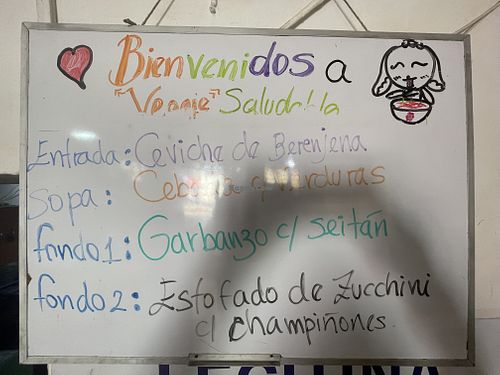 Bienvenidos a
"Veggie" Saludable
Entrada: Ceviche de Berenjena
Sopa: Cebada c/ verduras
fondo1: Garbanzo c/ seitán
fondo2: Estofado de Zucchini
c/ champiñones.